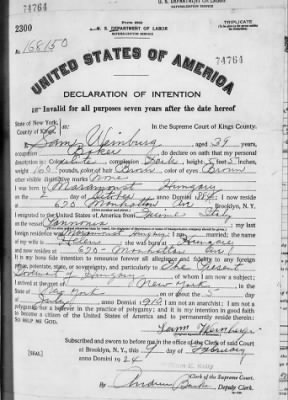 74764
U. S. DEPARTMENT OF LABOR
2300
U. S. DEPARTMENT OF LABOR
NATURALIZATION SERVICE
TRIPLICATE
No. 168150
UNITED STATES OF AMERICA
74764
DECLARATION OF INTENTION
Invalid for all purposes seven years after the date hereof
State of New York,
County of Kings,
ss:
In the Supreme Court of Kings County.
I, Sam Weinburg, aged 39 years,
occupation Baker, do declare on oath that my personal
description is: Color White, complexion Dark, height 5 feet 5 inches,
weight 160 pounds, color of hair Brown, color of eyes Brown
other visible distinctive marks none
I was born in Hungary
on the 2 day of October, anno Domini 1884; I now reside
at 620 Manhattan Ave, Brooklyn, N. Y.
I emigrated to the United States of America from Italy
on the vessel; my last
foreign residence was; I am married; the name
of my wife is Helen; she was born at Hungary
and now resides at 620 Manhattan Av
It is my bona fide intention to renounce forever all allegiance and fidelity to any foreign
prince, potentate, state, or sovereignty, and particularly to The Present
Government of Hungary, of whom I am now a subject;
I arrived at the port of New York, in the
State of New York, on or about the 5 day
of July, anno Domini; I am not an anarchist; I am not a
polygamist nor a believer in the practice of polygamy; and it is my intention in good faith
to become a citizen of the United States of America and to permanently reside therein:
SO HELP ME GOD.
Sam Weinberger
Subscribed and sworn to before me in the office of the Clerk of said Court
at Brooklyn, N. Y., this 9 day of February
anno Domini 1924
[SEAL]
Clerk of the Supreme Court.
By Andrew, Deputy Clerk.